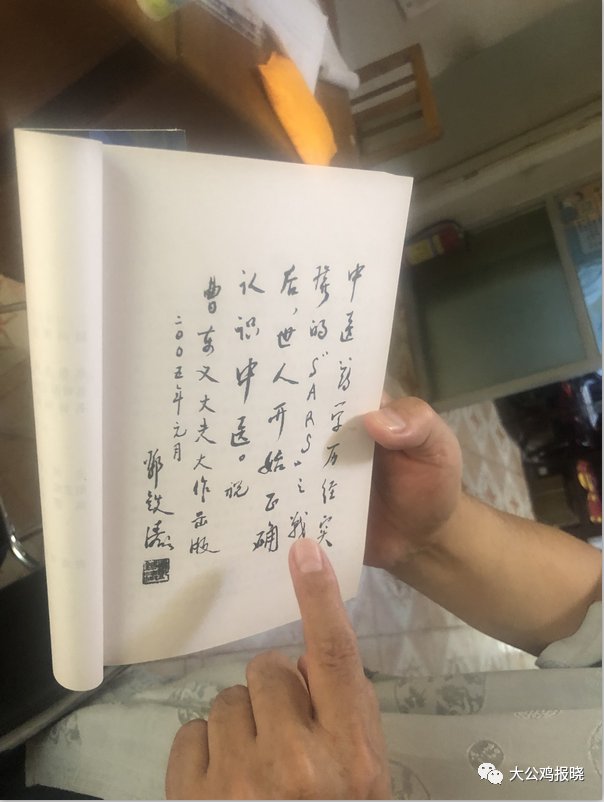 中医药学历经突
發的“SARS”之战
后，世人开始正确
认识中医。祝
曹东义大夫大作出版
二〇〇五年元月
鄧铁涛
大公鸡报晓